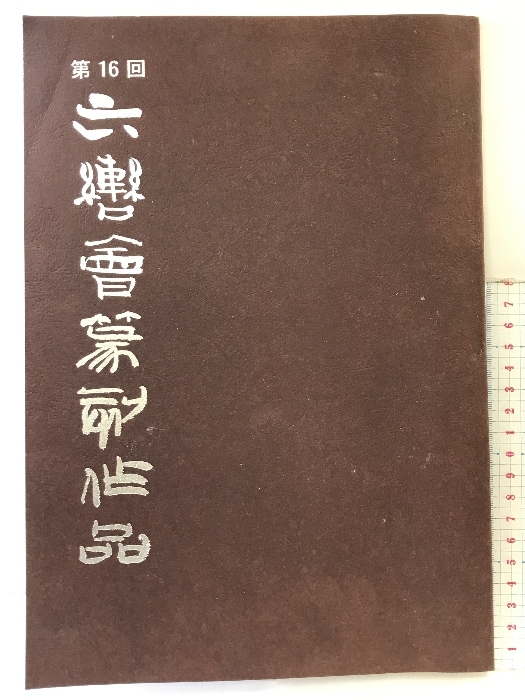 第16回
六轡會篆刻作品
1 2 3 4 5 6 7 8 9 0 1 2 3 4 5 6 7 8